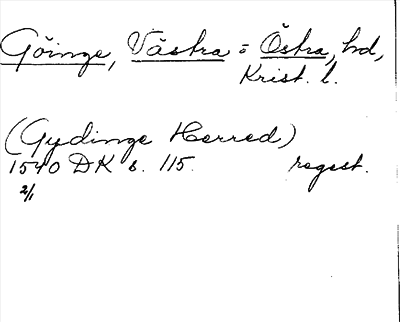 Göinge, Västra = Östra, hd,
Krist. l.
(Gydinge Herred)
1540 DK s. 115. regest.
2/1